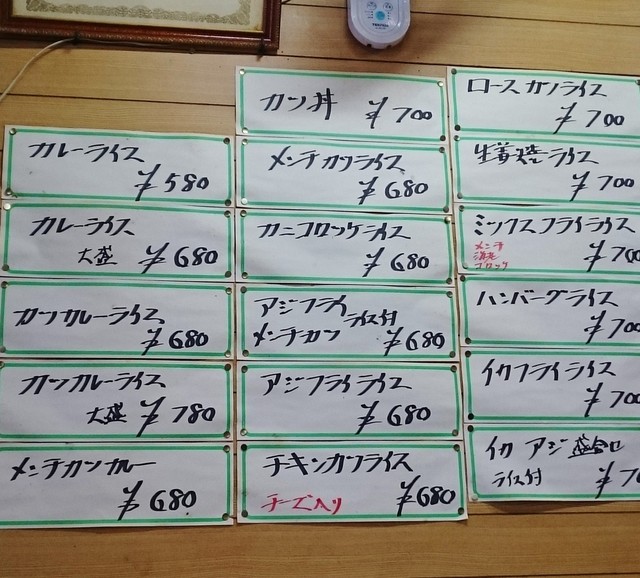 カレーライス
¥580
カレーライス
大盛 ¥680
カツカレーライス
¥680
カツカレーライス
大盛 ¥780
メンチカツカレー
¥680
カツ丼 ¥700
メンチカツライス
¥680
カニコロッケライス
¥680
アジフライ
ライス付
メンチカツ ¥680
アジフライライス
¥680
チキンカツライス
チーズ入り ¥680
ロースカツライス
¥700
生姜焼ライス
¥700
ミックスフライライス
メンチ
コロッケ
¥700
ハンバーグライス
¥700
イカフライライス
¥700
イカ アジ 盛合
ライス付 ¥7